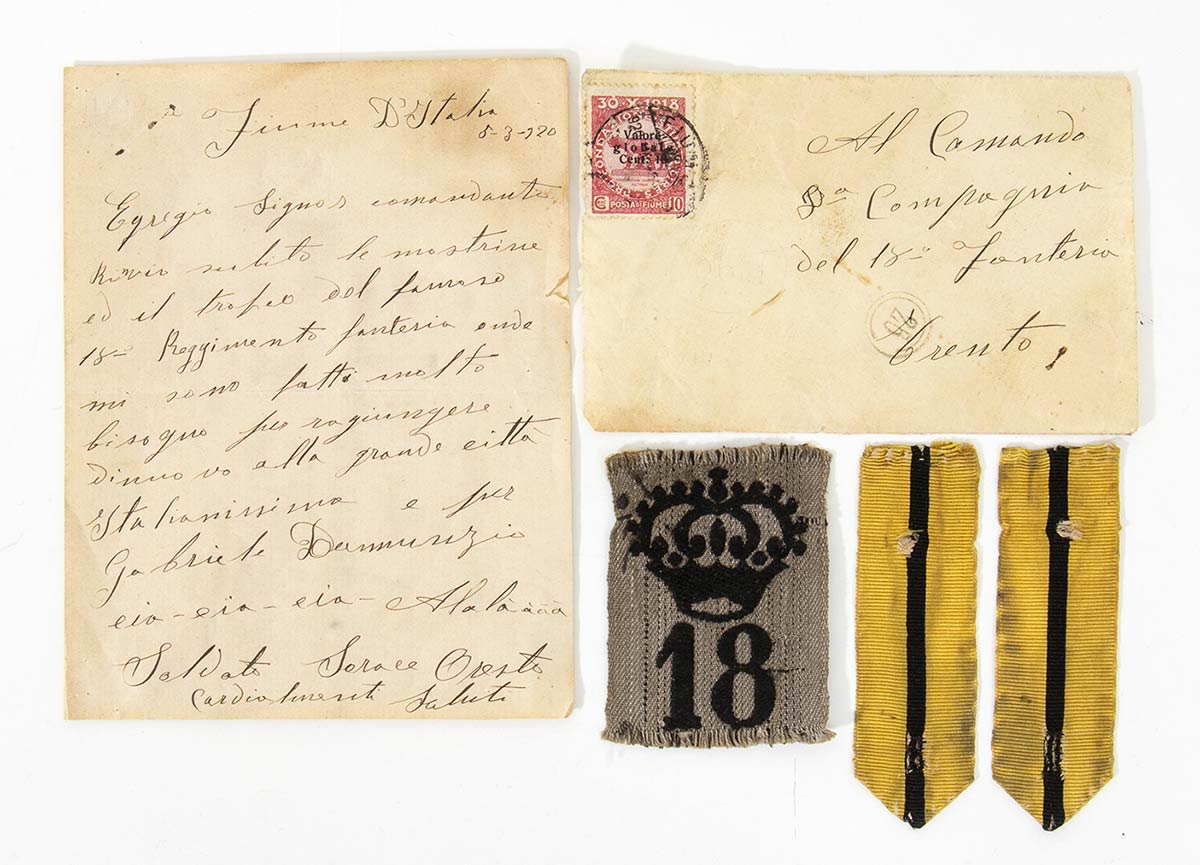 Fiume D'Italia
5-3-920
Egregio Signor comandante
Rinvio subito le mostrine
ed il trofeo del famoso
18º Reggimento fanteria onde
mi sono fatti molto
bisogno per ragiungere
dinuovo alla grande città
Italianissima e per
Gabriele Dannunzio
eia-eia-eia- Alalà àààà
Soldato Sorace Oreste
Cordialmenti Saluti
30·X·1918
Valore
globale
Cent.
POSTA DI FIUME
10
Al Comando
8ª Compagnia
del 18º Fanteria
Trento
18